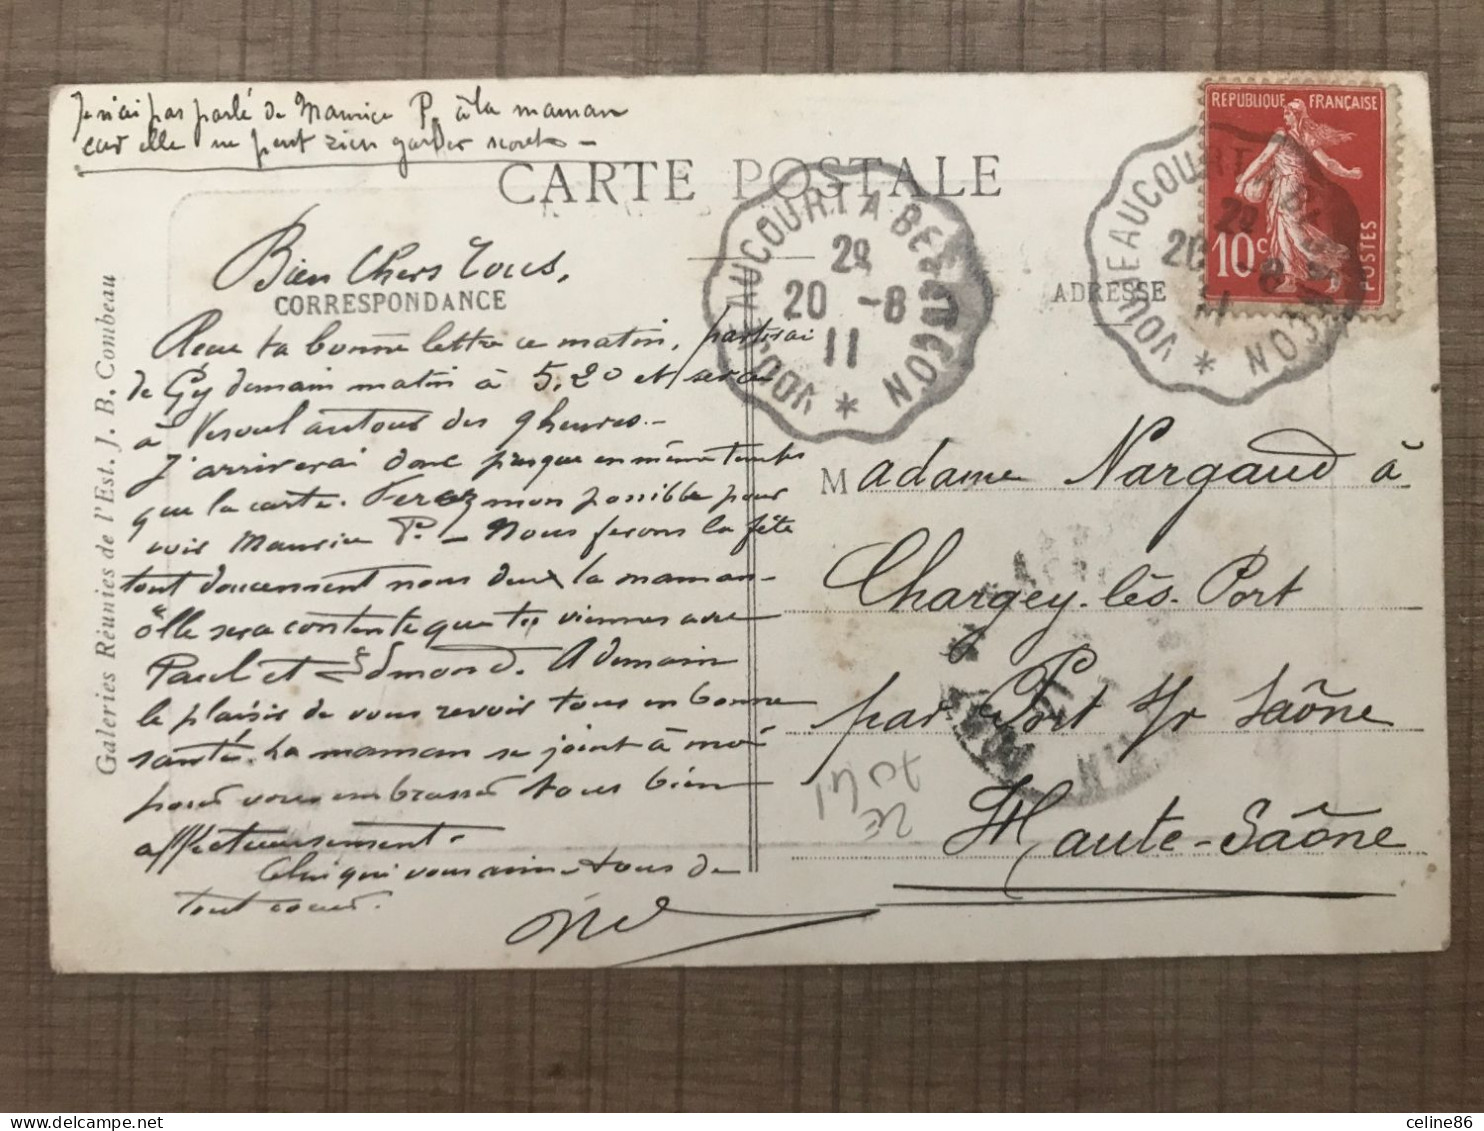 Je n'ai pas parlé de Maurice P. à la maman
car elle ne peut rien garder secret -
CARTE POSTALE
Bien Chers Tous,
CORRESPONDANCE
Reçu ta bonne lettre ce matin, partirai
de Gy demain matin à 5,20 et serai
à Vesoul autour des 9 heures.-
J'arriverai donc presque en même temps
que la carte. Ferez mon possible pour
voir Maurice P. - Nous ferons la fête
tout doucement nous deux la maman-
elle sera contente que tu viennes avec
Paul et Edmond. A demain
le plaisir de vous revoir tous en bonne
santé. La maman se joint à moi
pour vous embrasser tous bien
affectueusement.
Celui qui vous aime tous de
tout coeur.
Galeries Réunies de l'Est. J. B. Combeau
AUCOURT A BE
29
20 -8
11
*
ADRESSE
REPUBLIQUE FRANÇAISE
10c
POSTES
BEAUCOURT A
29
20 -8
11
*
Madame Nargaud à
Chargey-lès-Port
par Port s/r Saône
Haute-Saône
celine86